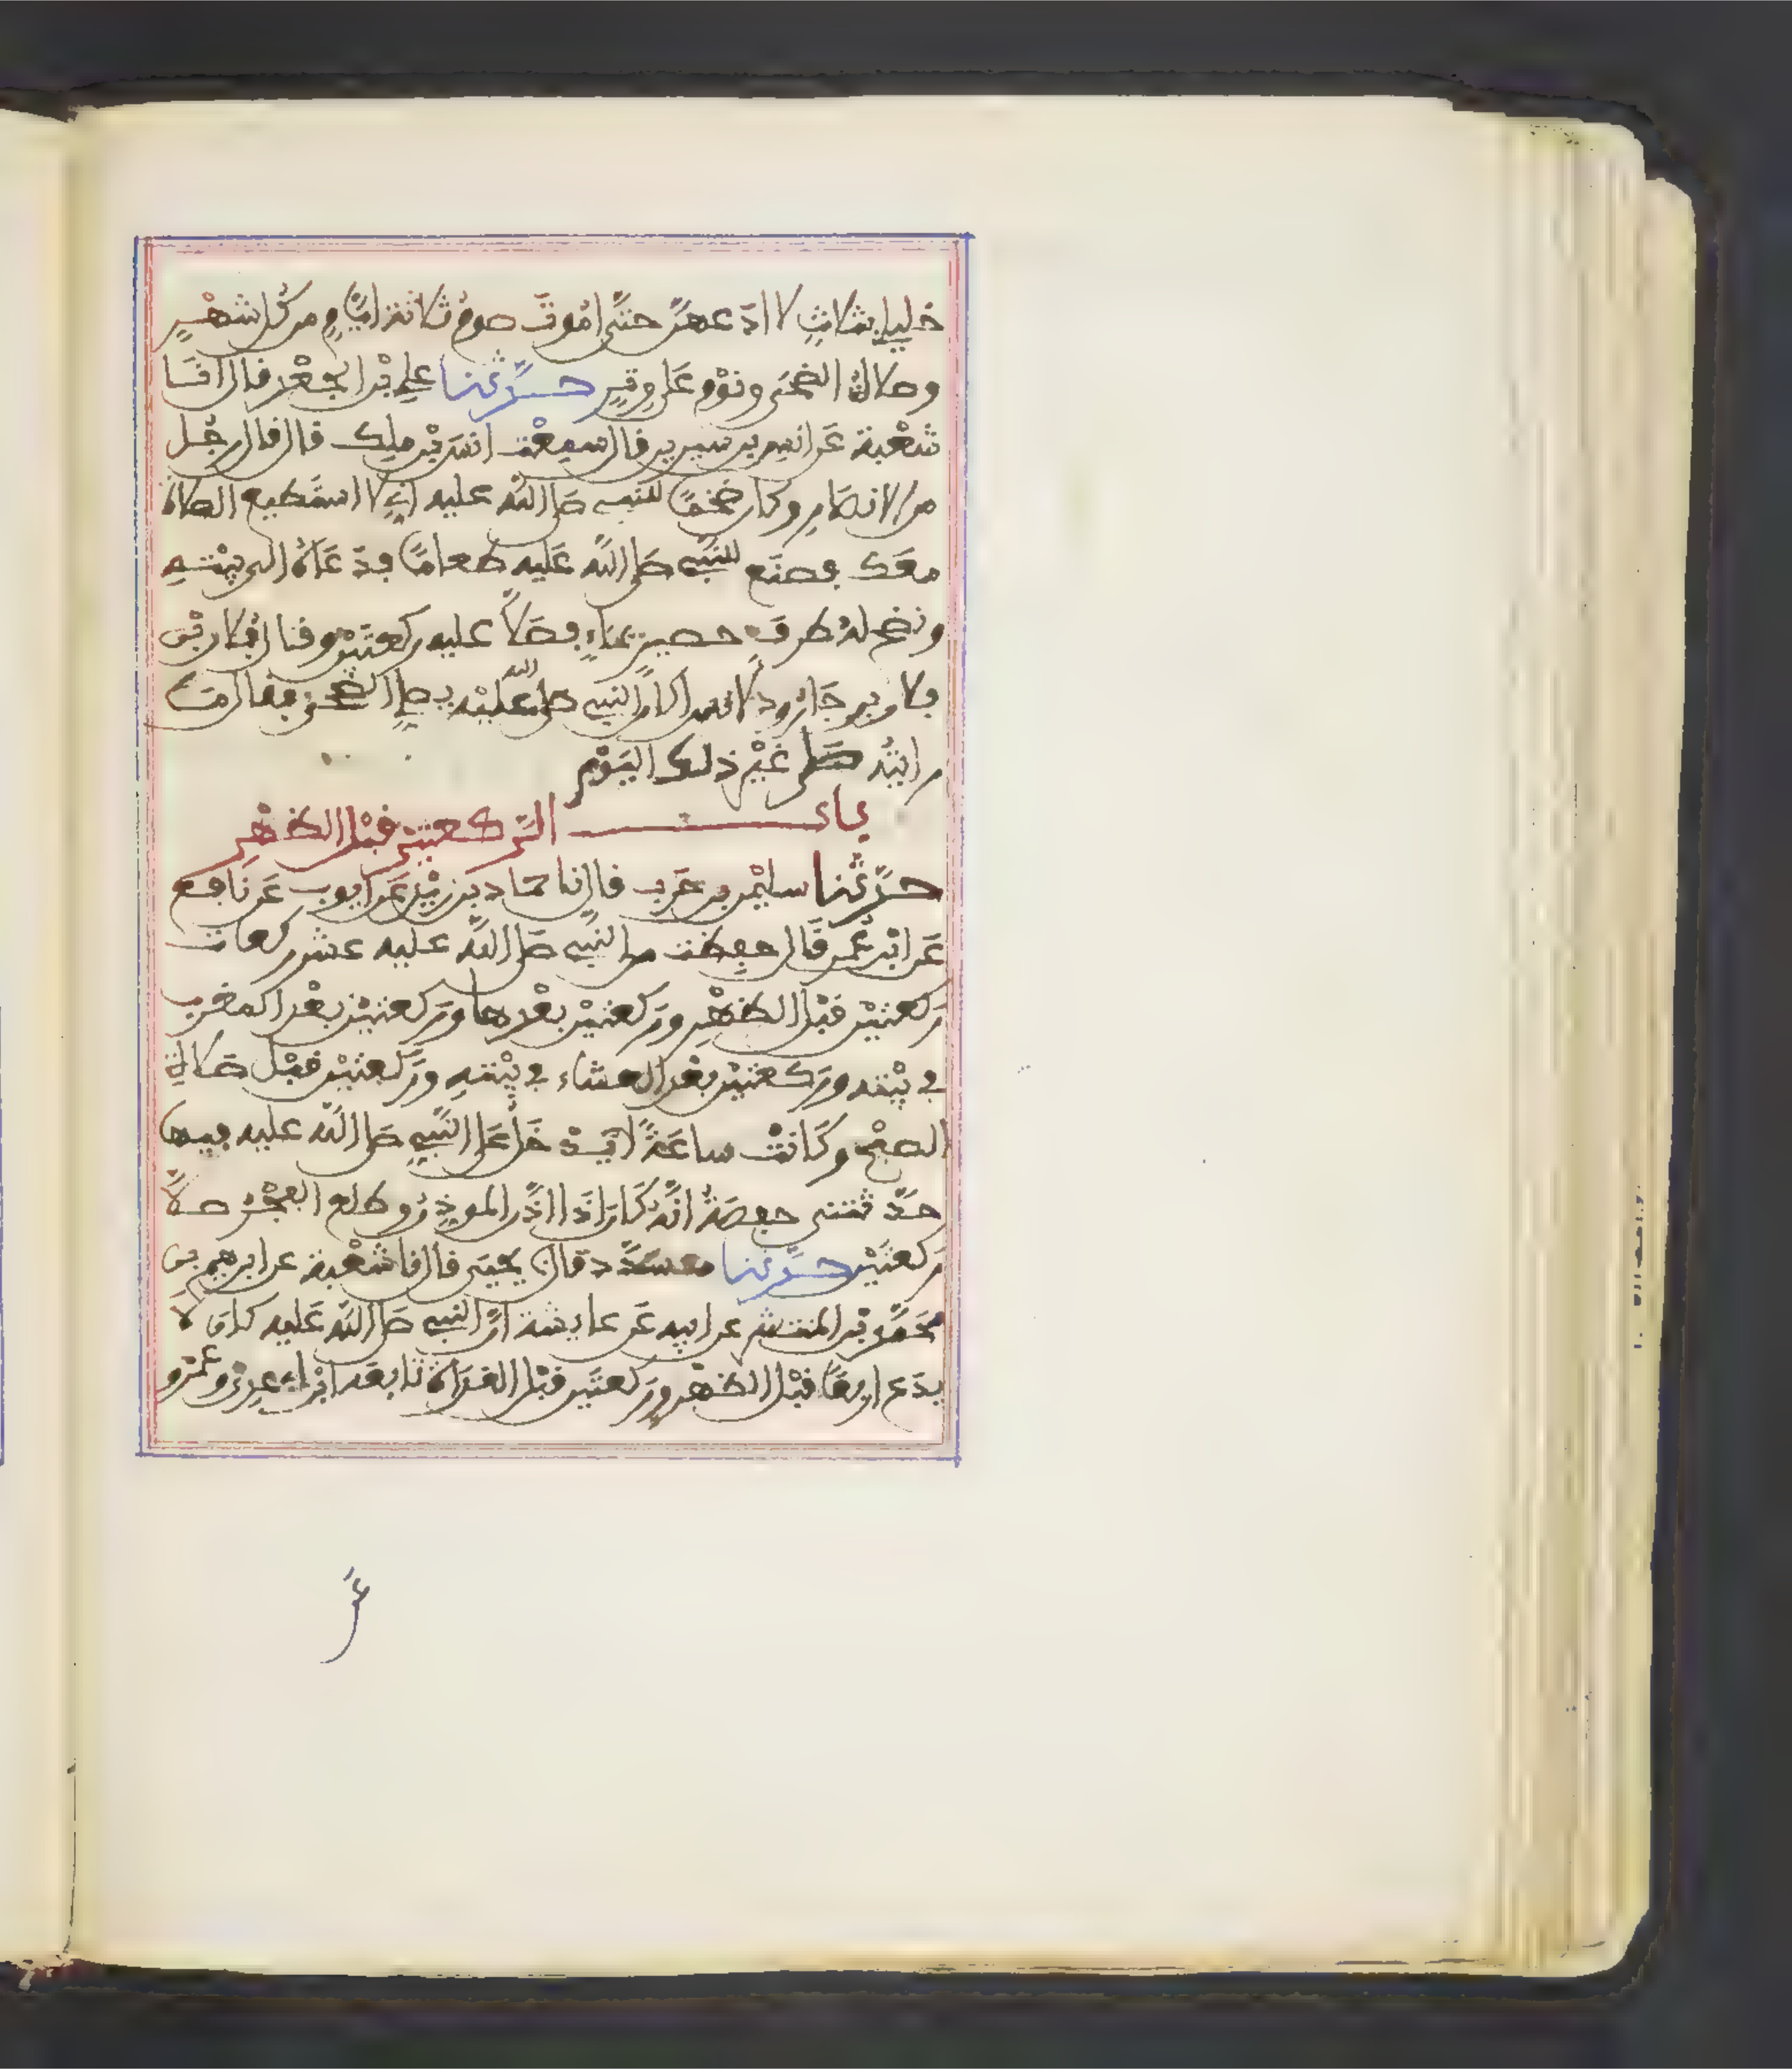 خليلي بثلاث لا ادعهن حتى اموت صوم ثلاثة ايام من كل شهر
وصلاة الضحى ونوم على وتر حدثنا علي بن الجعد قال انا
شعبة عن انس بن سيرين قال سمعت انس بن ملك قال قال رجل
من الانصار وكان ضخما للنبي صلى الله عليه اني لا استطيع الصلاة
معك فصنع للنبي صلى الله عليه طعاما فدعاه الى بيته
ونضح له طرف حصير بماء فصلا عليه ركعتين وقال فلان بن
فلان بن جارود لانس اكان النبي صلى الله عليه يصلي الضحى فقال ما
رايته صلى غير ذلك اليوم
باب الركعتين قبل الظهر
حدثنا سليمن بن حرب قال نا حماد بن زيد عن ايوب عن نافع
عن ابن عمر قال حفظت من النبي صلى الله عليه عشر ركعات
ركعتين قبل الظهر وركعتين بعدها وركعتين بعد المغرب
في بيته وركعتين بعد العشاء في بيته وركعتين قبل صلاة
الصبح وكانت ساعة لا يدخل على النبي صلى الله عليه فيها
حدثتني حفصة انه كان اذا اذن الموذن وطلع الفجر صلا
ركعتين حدثنا مسدد قال نا يحيى قال نا شعبة عن ابرهيم بن
محمد بن المنتشر عن ابيه عن عايشة ان النبي صلى الله عليه كان لا
يدع اربعا قبل الظهر وركعتين قبل الغداة تابعه ابن ابي عدي وعمرو
عن